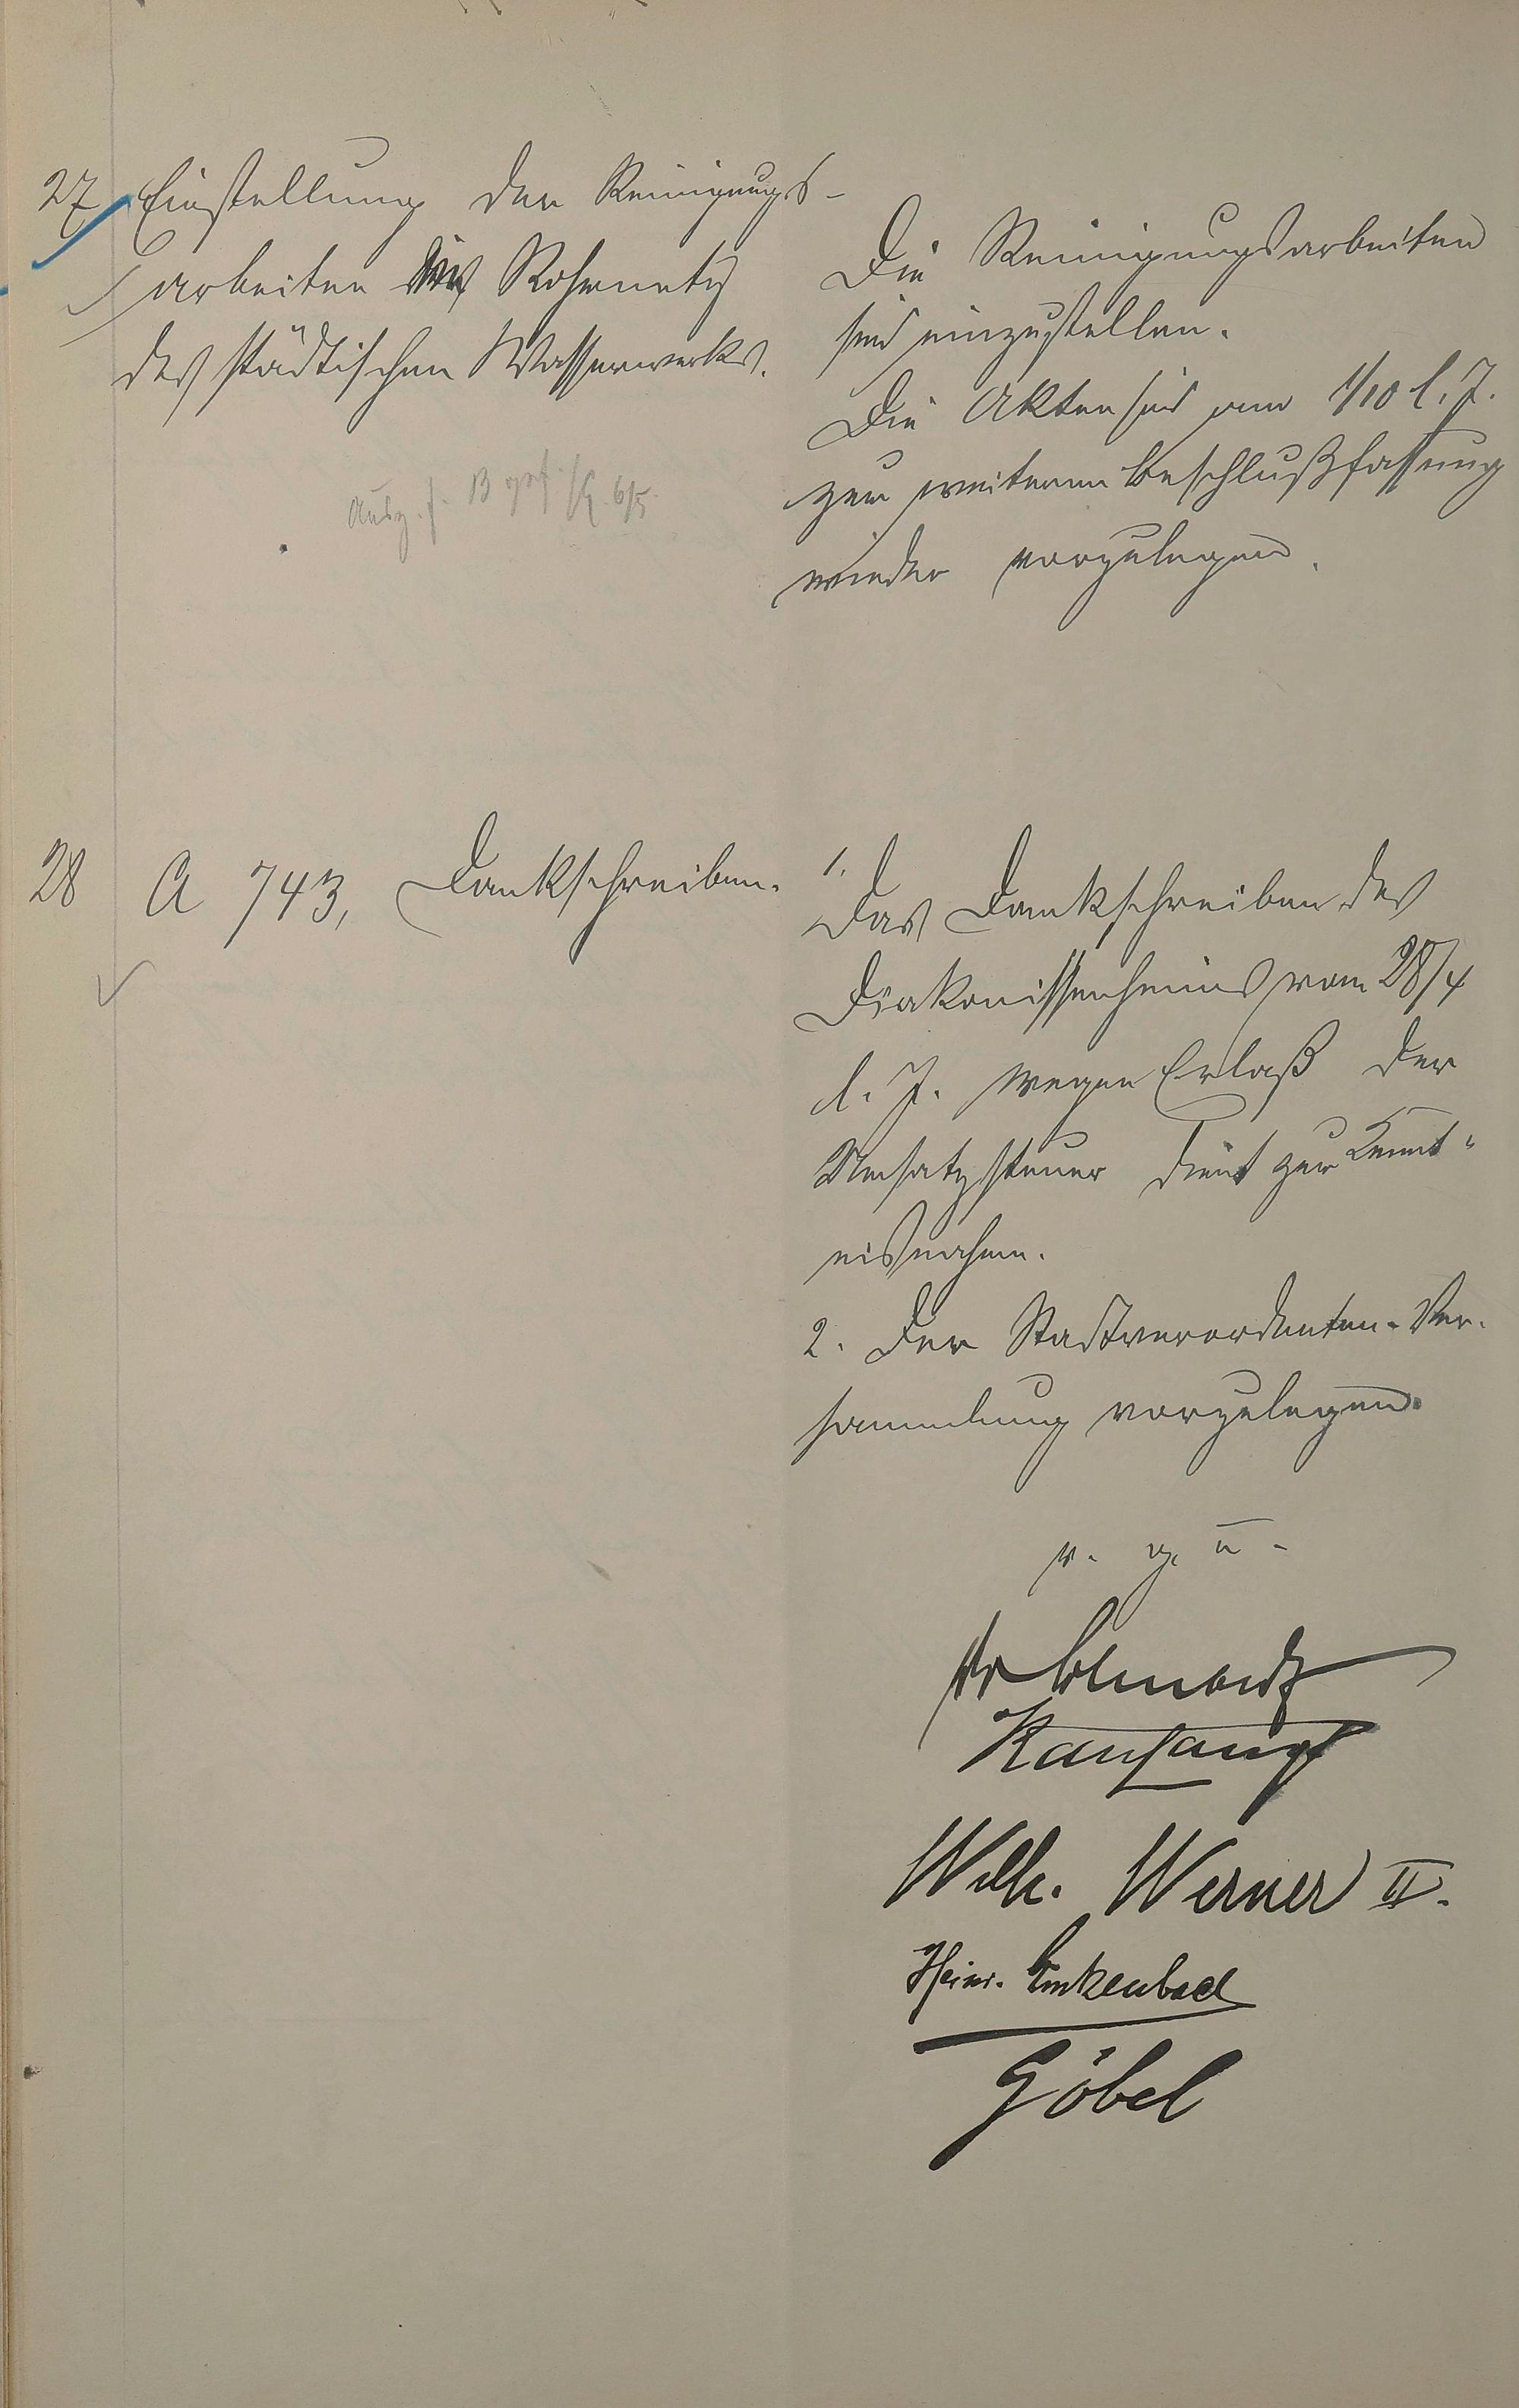 27 Einstellung der Reinigungs-
arbeiten im Rohrnetz
des städtischen Wasserwerks.
Die Reinigungsarbeiten
sind einzustellen.
Die Akten sind am 1/10 l. J.
zur weiteren Beschlußfassung
wieder vorzulegen.
Ausz. f. B 6/5.
28 A 743, Dankschreiben.
1.
Das Dankschreiben des
Diakonissenheims vom 28/4
l. J. wegen Erlaß der
Umsatzsteuer dient zur Kennt-
nisnahme.
2. Der Stadtverordneten-Ver-
sammlung vorzulegen.
v. g. u.
Wilh. Werner II.
Heinr. Linkenbach
Göbel